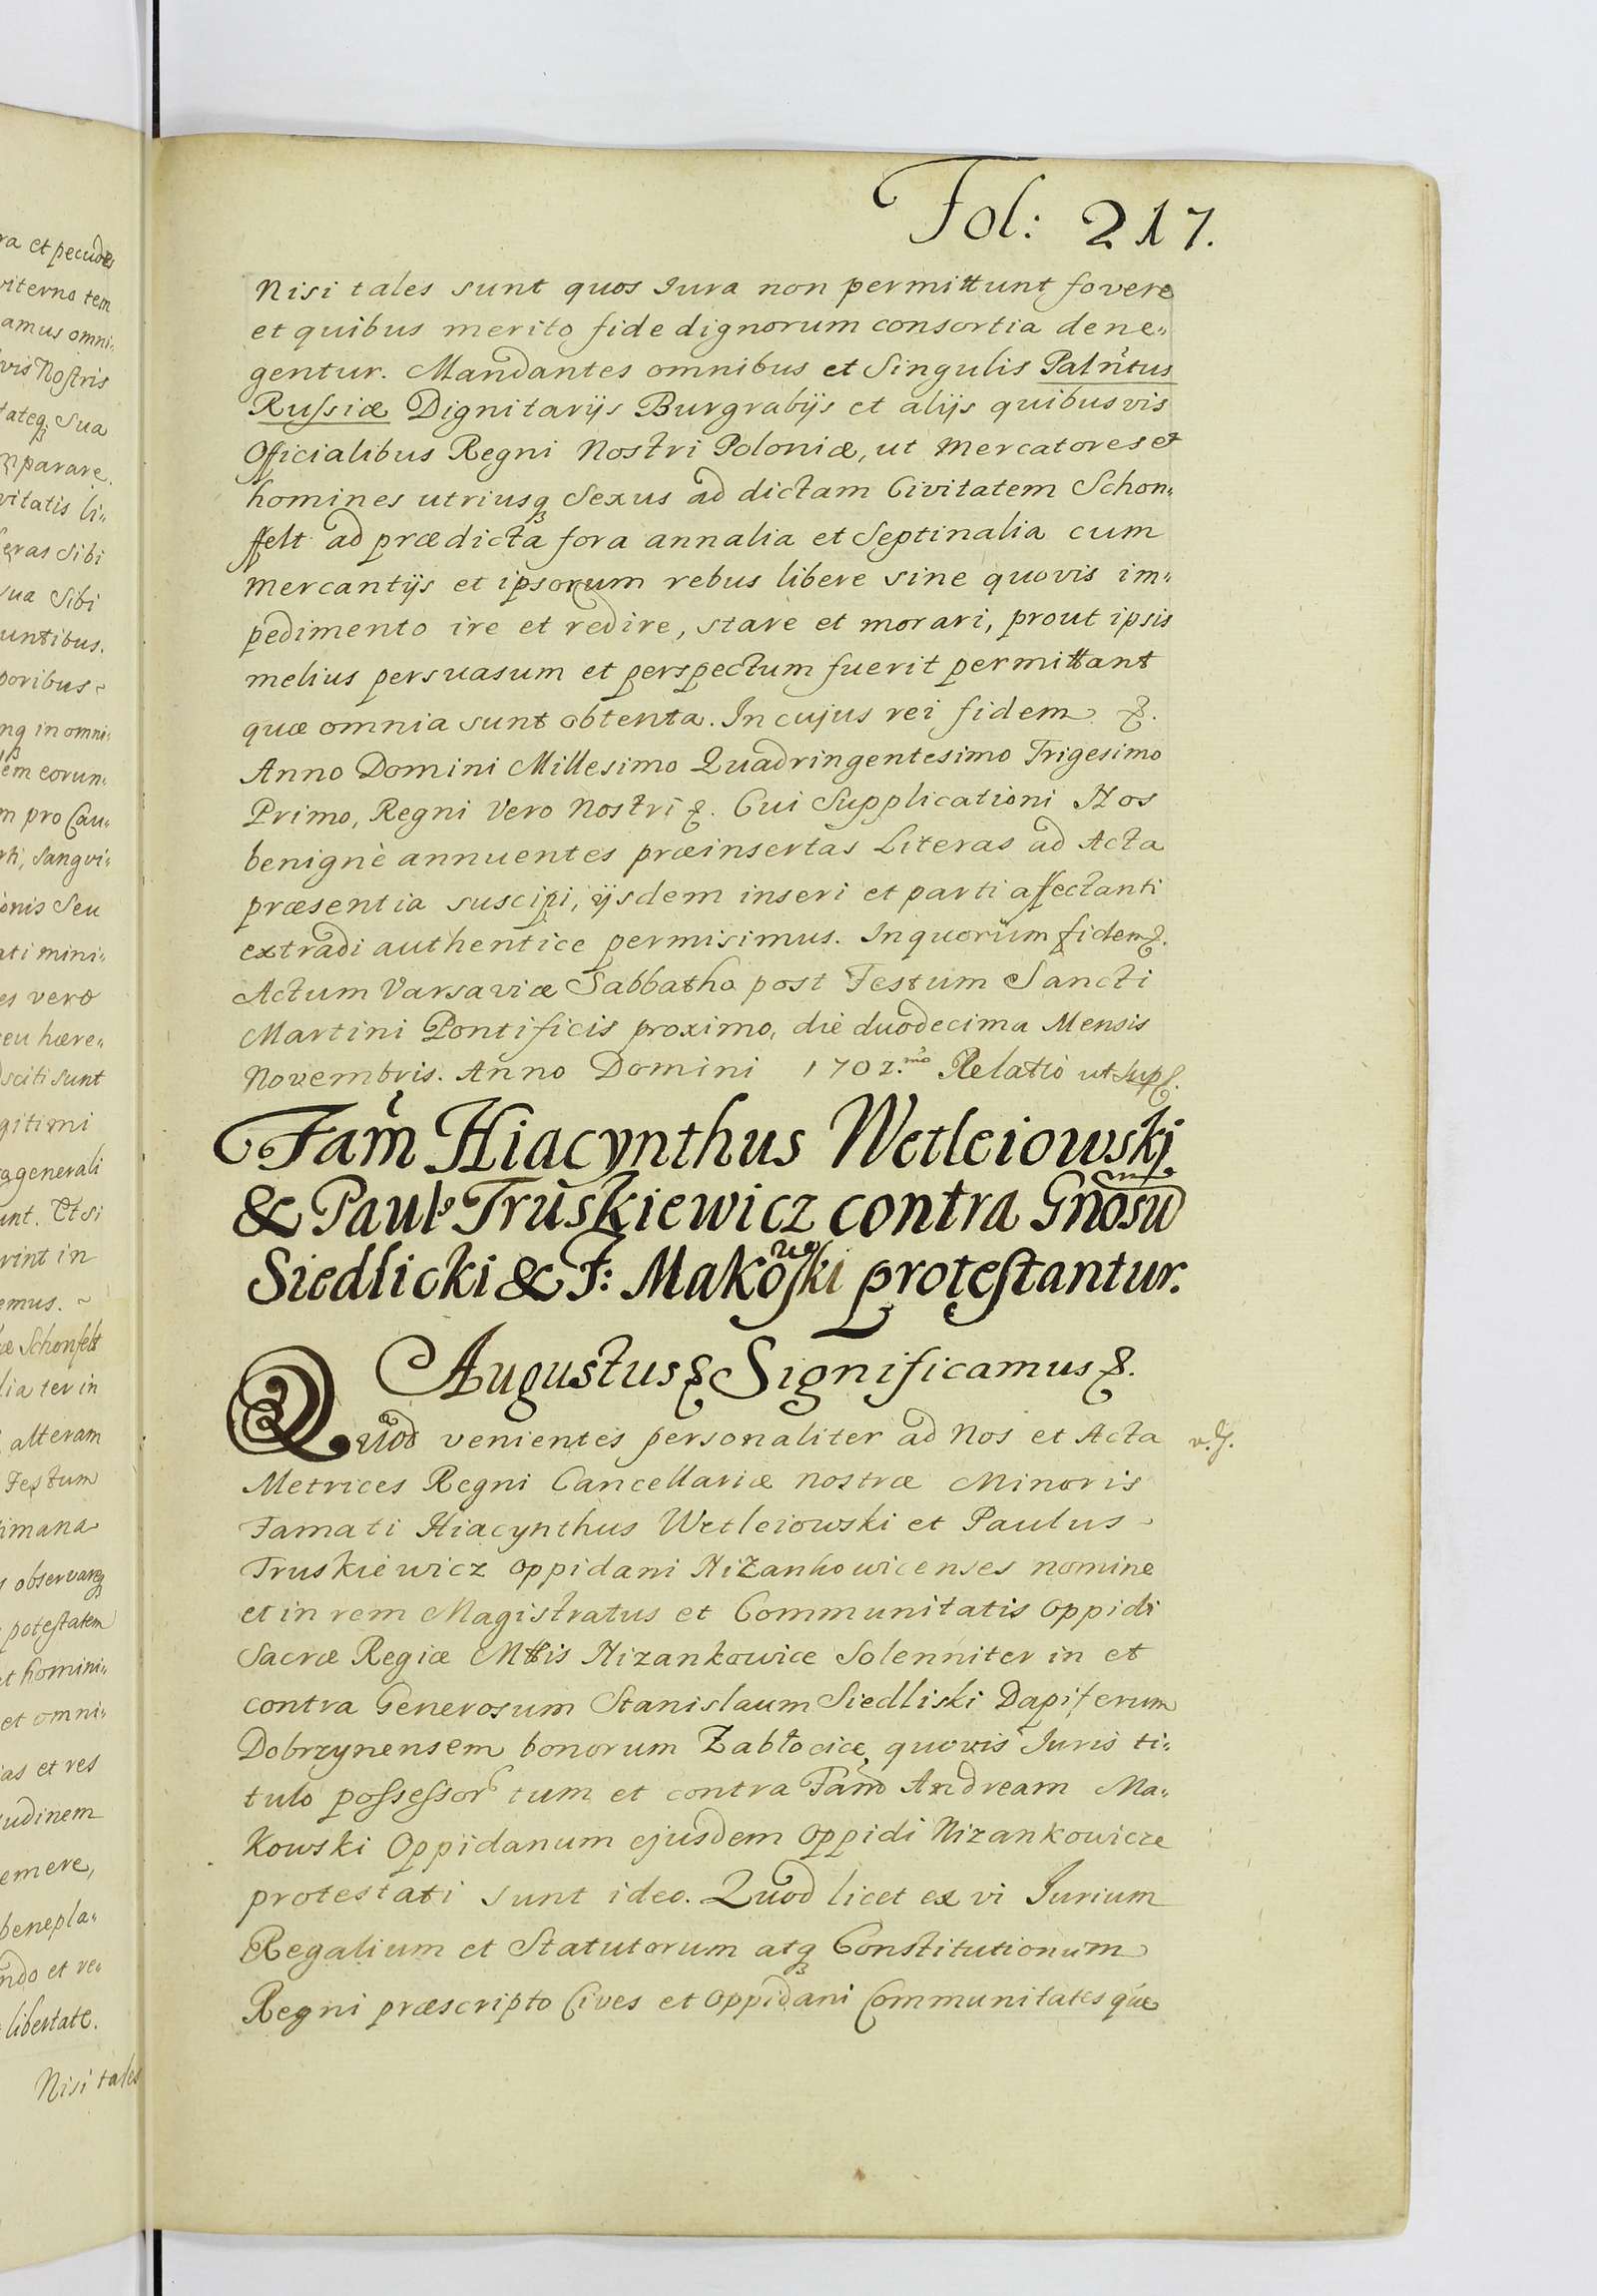 Fol: 217.
Nisi tales sunt quos Iura non permittunt fovere
et quibus merito fide dignorum consortia dene„
gentur. Mandantes omnibus et Singulis Palñtus
Russiæ Dignitarijs Burgrabijs et alijs quibusvis
Officialibus Regni Nostri Poloniæ, ut Mercatores et
homines utriusq₃ Sexus ad dictam Civitatem Schon„
ffelt ad prædicta fora annalia et Septinalia cum
Mercantijs et ipsorum rebus libere sine quovis im„
pedimento ire et redire, stare et morari, prout ipsis
melius persuasum et perspectum fuerit permittant
quæ omnia sunt obtenta. In cujus rei fidem &.
Anno Domini Millesimo Quadringentesimo Trigesimo
Primo, Regni Vero Nostri &. Cui Supplicationi Nos
benignè annuentes præinsertas Literas ad Acta
præsentia suscipi, ijsdem inseri et parti affectanti
extradi authentice permisimus. In quorum fidem &.
Actum Varsaviæ Sabbatho post Festum Sancti
Martini Pontificis proximo, die duodecima Mensis
Novembris. Anno Domini 1702.mo Relatio ut
Fam̃ Hiacynthus Wetleiowski
& Paul9 Truskiewicz contra Gnosũ
Siedlicki & F: Makowski protestantur.
Augustus & Significamus &.
Quod venientes personaliter ad Nos et Acta
Metrices Regni Cancellariæ nostræ Minoris
Famati Hiacynthus Wetleiowski et Paulus
Truskiewicz Oppidani Niżankowicenses nomine
et in rem Magistratus et Communitatis Oppidi
Sacræ Regiæ Mttis Nizankowice Solenniter in et
contra Generosum Stanislaum Siedliski Dapiferum
Dobrzynensem bonorum Zabłocice quovis Iuris ti„
tulo possessor tum et contra Fam̃ Andream Ma„
Kowski Oppidanum ejusdem Oppidi Nizankowicze
protestati sunt ideo. Quod licet ex vi Jurium
Regalium et Statutorum atq₃ Constitutionum
Regni præscripto Cives et Oppidani Communitates que
ra et pecudes
viterno tem
amus omni„
vis Nostris
tateq₃ Sua
parare.
vitatis li„
eras Sibi
sua Sibi
untibus.
poribus
in omni„
em eorun„
m pro Cau„
sangvi„
ionis Seu
ati mini„
es vero
seu hære„
sciti sunt
gitimi
generali
unt. Et si
rint in
emus.
Schonfelt
lia ter in
alteram
Festum
timana
observareq₃
potestatem
et homini„
et omni„
as et res
tudinem
emere,
benepla„
ndo et re„
libertate.
Nisi tales